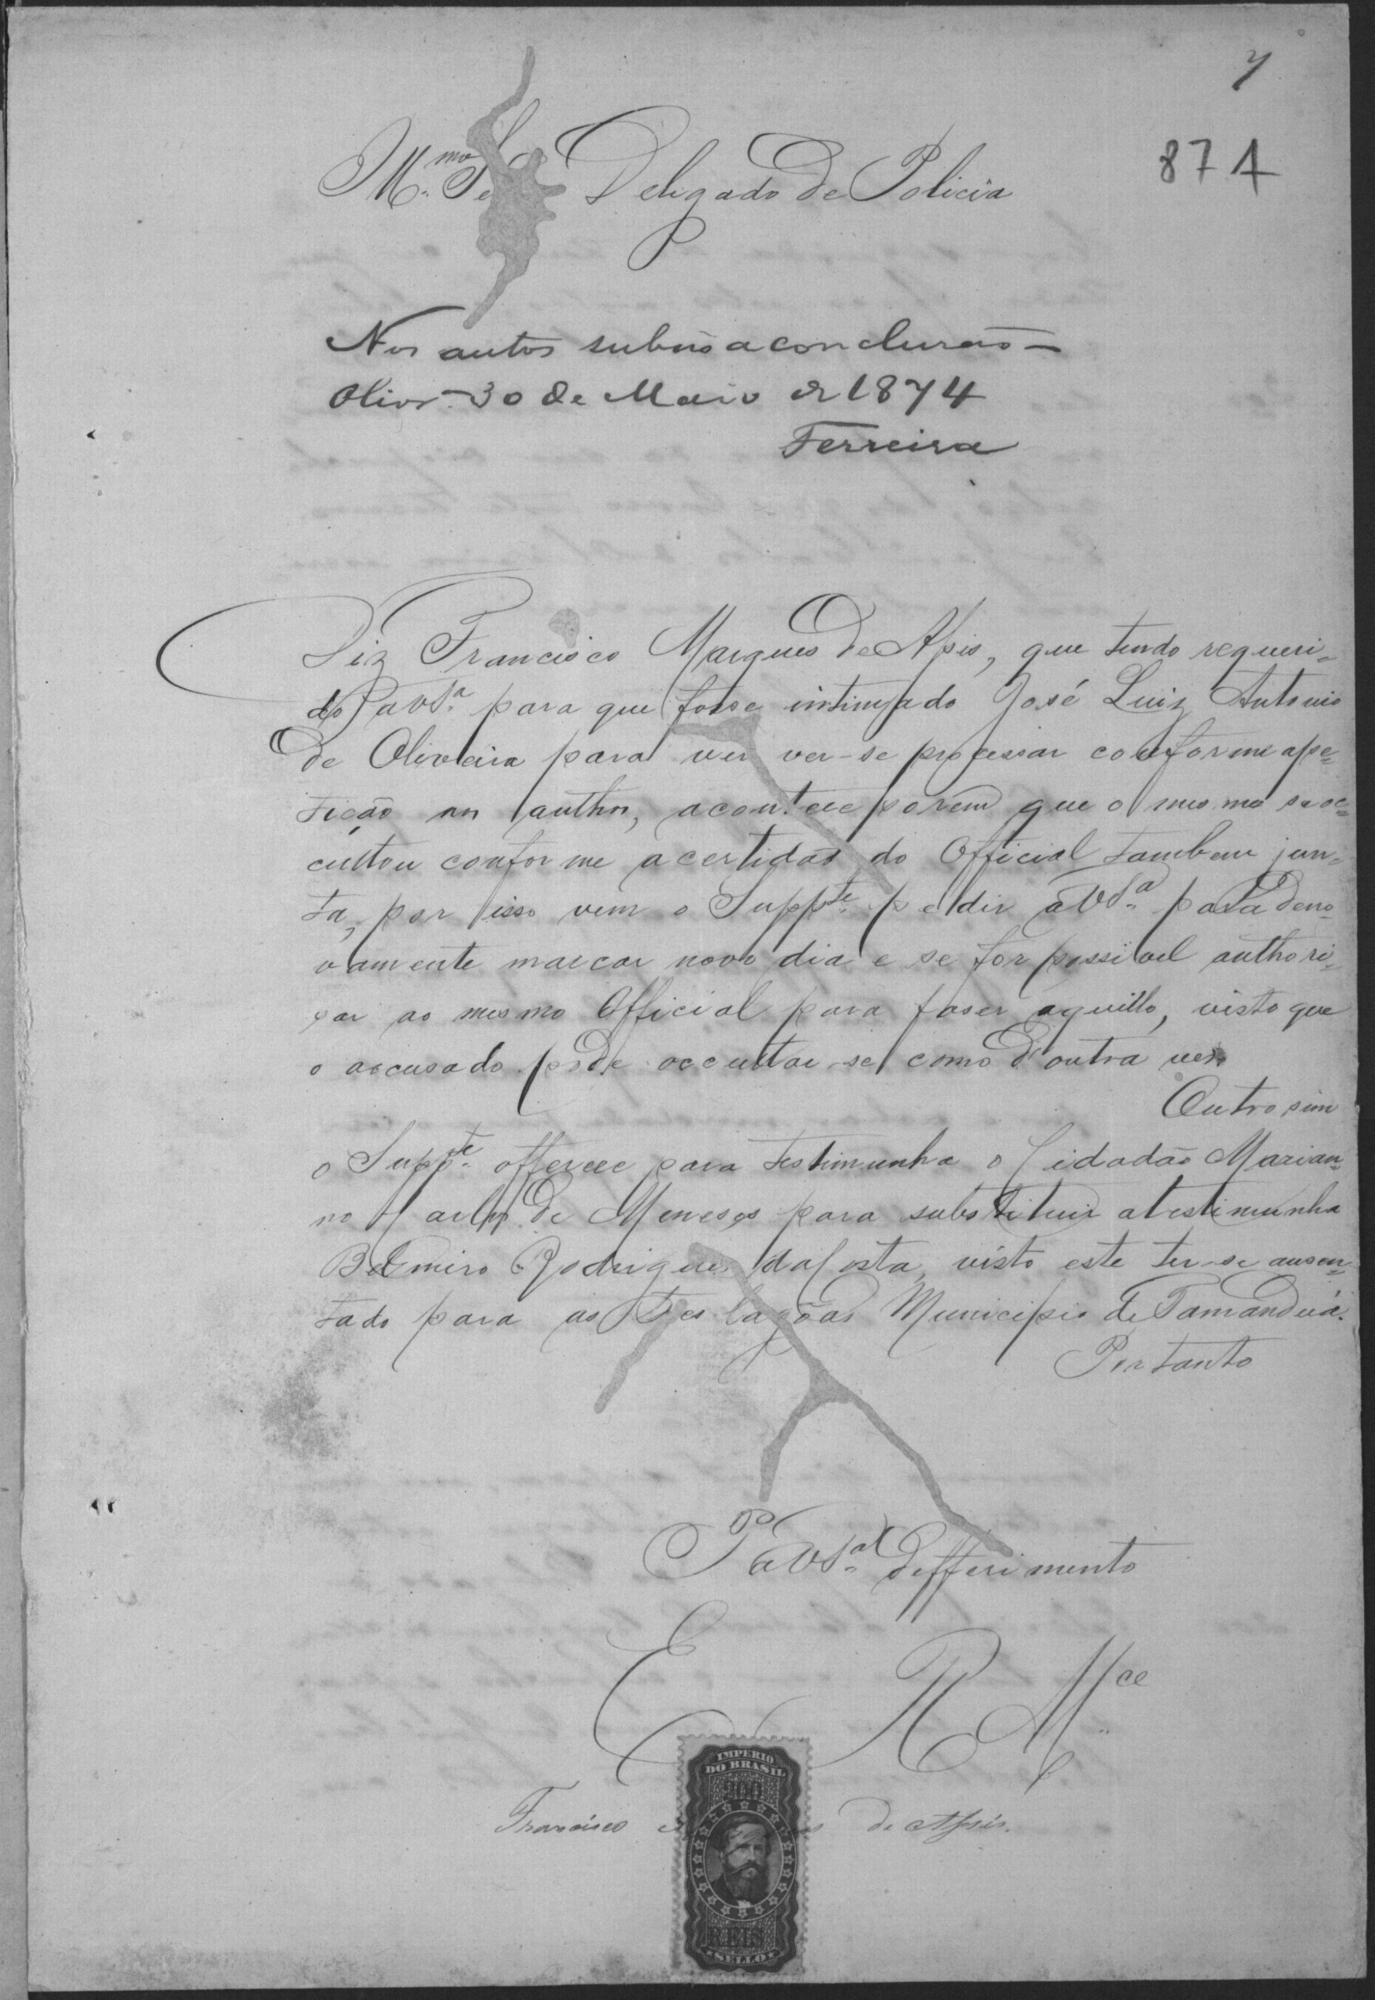 7
874
Mmo. Sr. Delegado de Policia
Nos autos subão a conclusão
Olivra. 30 de Maio de 1874
Ferreira
Diz Francisco Marques de Assis, que tendo requeri-
do a VSa. para que fosse intimado José Luiz Antonio
de Oliveira para ver ver-se processar conforme a pe-
tição nos authos, acontece porém que o mesmo se oc-
cultou conforme a certidão do Official tambem jun-
ta, por isso vem o Suppte. pedir a VSa. para deno-
vamente marcar novo dia e se for possivel authori-
sar ao mesmo Official para faser aquillo, visto que
o accusado pode occultar-se como d'outra vez
Outro sim
o Suppte. offerece para testimunha o Cidadão Marian-
no Carlos de Meneses para substituir a testimunha
Belmiro Rodrigues da Costa, visto este ter-se ausen-
tado para as tres lagôas Municipio de Tamanduá.
Portanto
P a VSa. defferimento
E R Mce
Francisco de Assis.
IMPERIO
DO BRASIL
200
REIS
SELLO